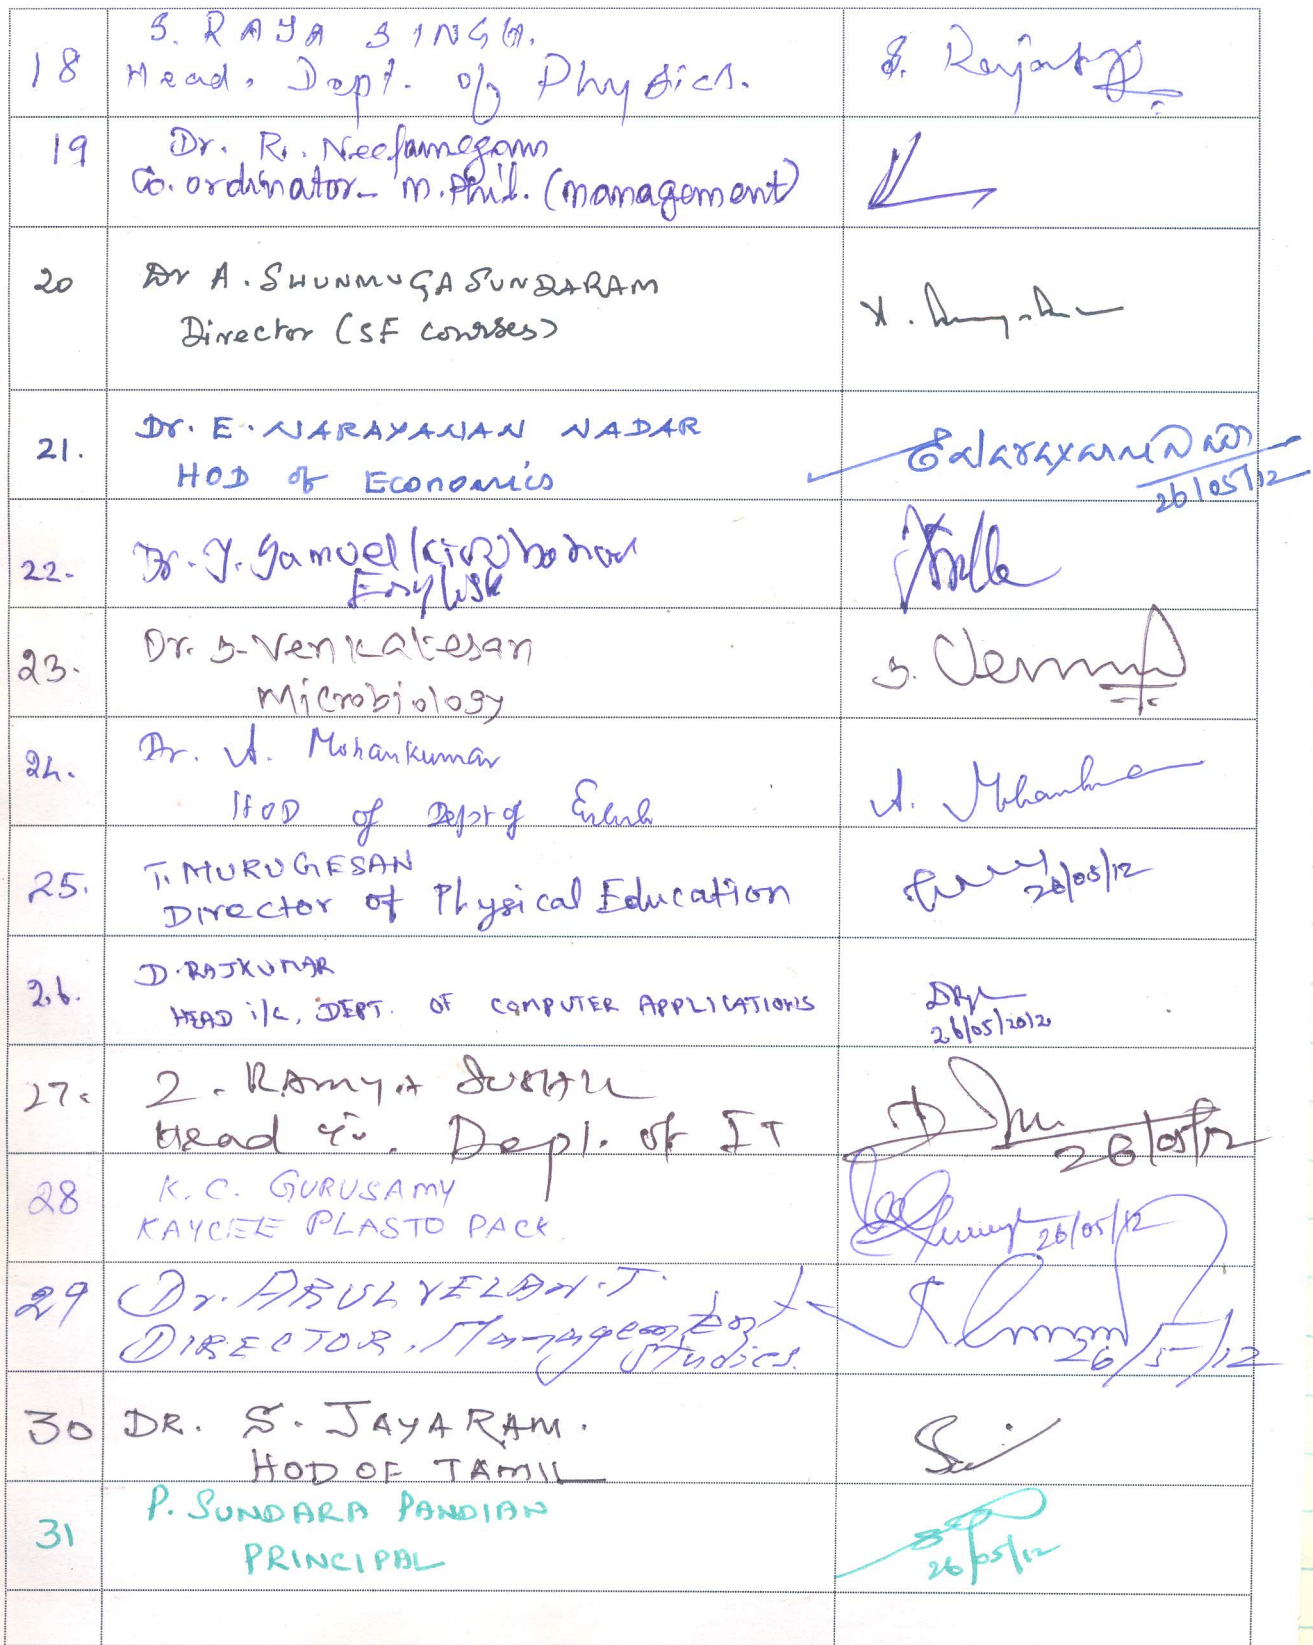 18 S. RAJA SINGH. S. Raja
Head, Dept. of Physics.
19 Dr. R. Neelamegam
Co.ordinator - M.Phil. (Management)
20 Dr A. SHUNMUGASUNDARAM
Director (SF courses)
21. Dr. E. NARAYANAN NADAR
HOD of Economics
26/05/12
22. Dr. J. Samuel
English
23. Dr. S. Venkatesan S.
Microbiology
24. Dr. A. Mohankumar A. Mohankumar
HOD of Dept of
25. T. MURUGESAN 26/05/12
Director of Physical Education
26. D. RAJKUMAR
HEAD i/c, DEPT. OF COMPUTER APPLICATIONS 26/05/2012
27. RAMYA
Head Dept. of IT 26/05/12
28 K.C. GURUSAMY
KAYCEE PLASTO PACK. 26/05/12
29 Dr. ARULVELAN.T.
DIRECTOR, Management Studies. 26/5/12
30 DR. S. JAYARAM.
HOD OF TAMIL
31 P. SUNDARA PANDIAN
PRINCIPAL 26/05/12